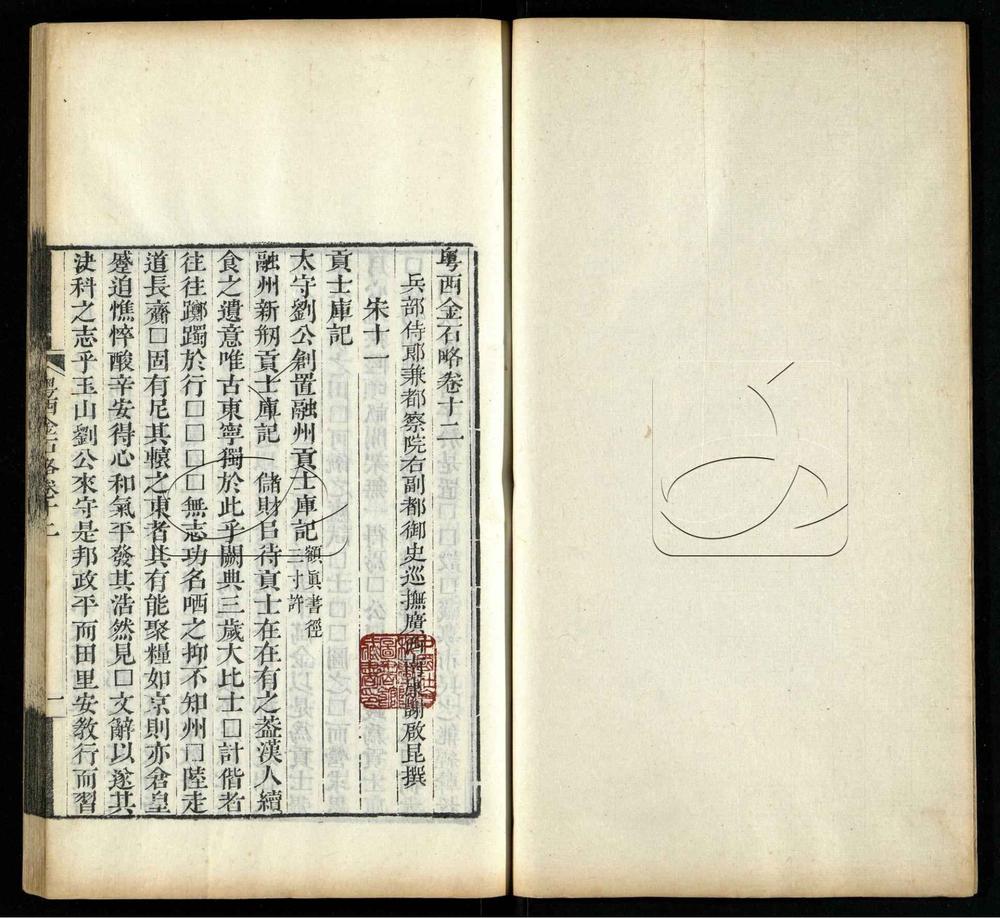 粵西金石略卷十二
兵部侍郎兼都察院右副都御史巡撫廣西南康謝啟昆撰
宋十二
貢士庫記
太守劉公創置融州貢士庫記額眞書徑三寸許
融州新剏貢士庫記 儲財㠯待貢士在在有之葢漢人續
食之遺意唯古東寧獨於此乎闕典三歲大比士□計偕者
往往躑躅於行□□□□無志功名哂之抑不知州□陸走
道長齎□固有尼其轅之東者其有能聚糧如京則亦倉皇
蹙迫憔悴酸辛安得心和氣平發其浩然見□文辭以遂其
決科之志乎玉山劉公來守是邦政平而田里安教行而習
粵西金石略卷十二
一